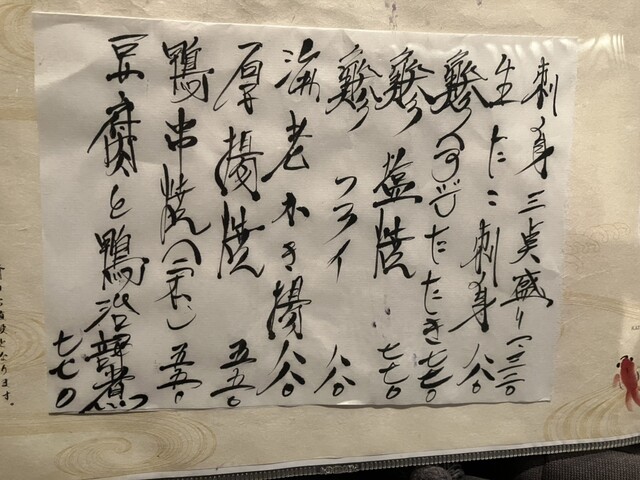 刺身三点盛り 一三二〇
生たこ刺身 八八〇
鯵(アジ)たたき 七七〇
鯵塩焼 七七〇
鯵フライ 八八〇
海老かき揚 八八〇
厚揚焼 五五〇
鴨串焼(二本) 五五〇
豆腐と鴨治部煮 七七〇
となります。